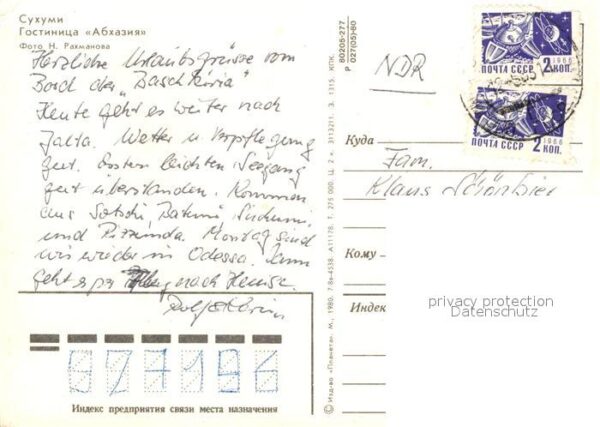 Сухуми
Гостиница «Абхазия»
Фото Н. Рахманова
Herzliche Urlaubsgrüsse vom
Bord der "Baschkiria"
Heute geht es weiter nach
Jalta. Wetter u. Verpflegung
gut. Ersten leichten Seegang
gut überstanden. Kommen
aus Sotschi Batumi Suchumi
und Pizunda. Montag sind
wir wieder in Odessa. Dann
geht's per Flug nach Hause.
80205-277
Р 027(05)-80
NDR
ПОЧТА СССР 1966 2 КОП.
ПОЧТА СССР 1966 2 КОП.
Куда
Fam.
Klaus Schönbier
Кому
Индекс
privacy protection
Datenschutz
© Изд-во «Планета». М., 1980. 7 8з-4538. А11178. Т. 275 000. Ц. 2 к. 3113211. З. 1315. КПК.
977196
Индекс предприятия связи места назначения